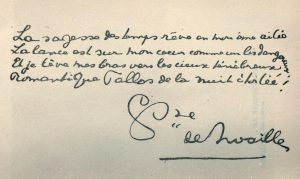 La sagesse des temps rêve en mon âme
La lance est sur mon cœur comme un
Et je lève mes bras vers les cieux ténébreux
Romantique Pallas de la nuit étoilée !
Css de
de Noailles